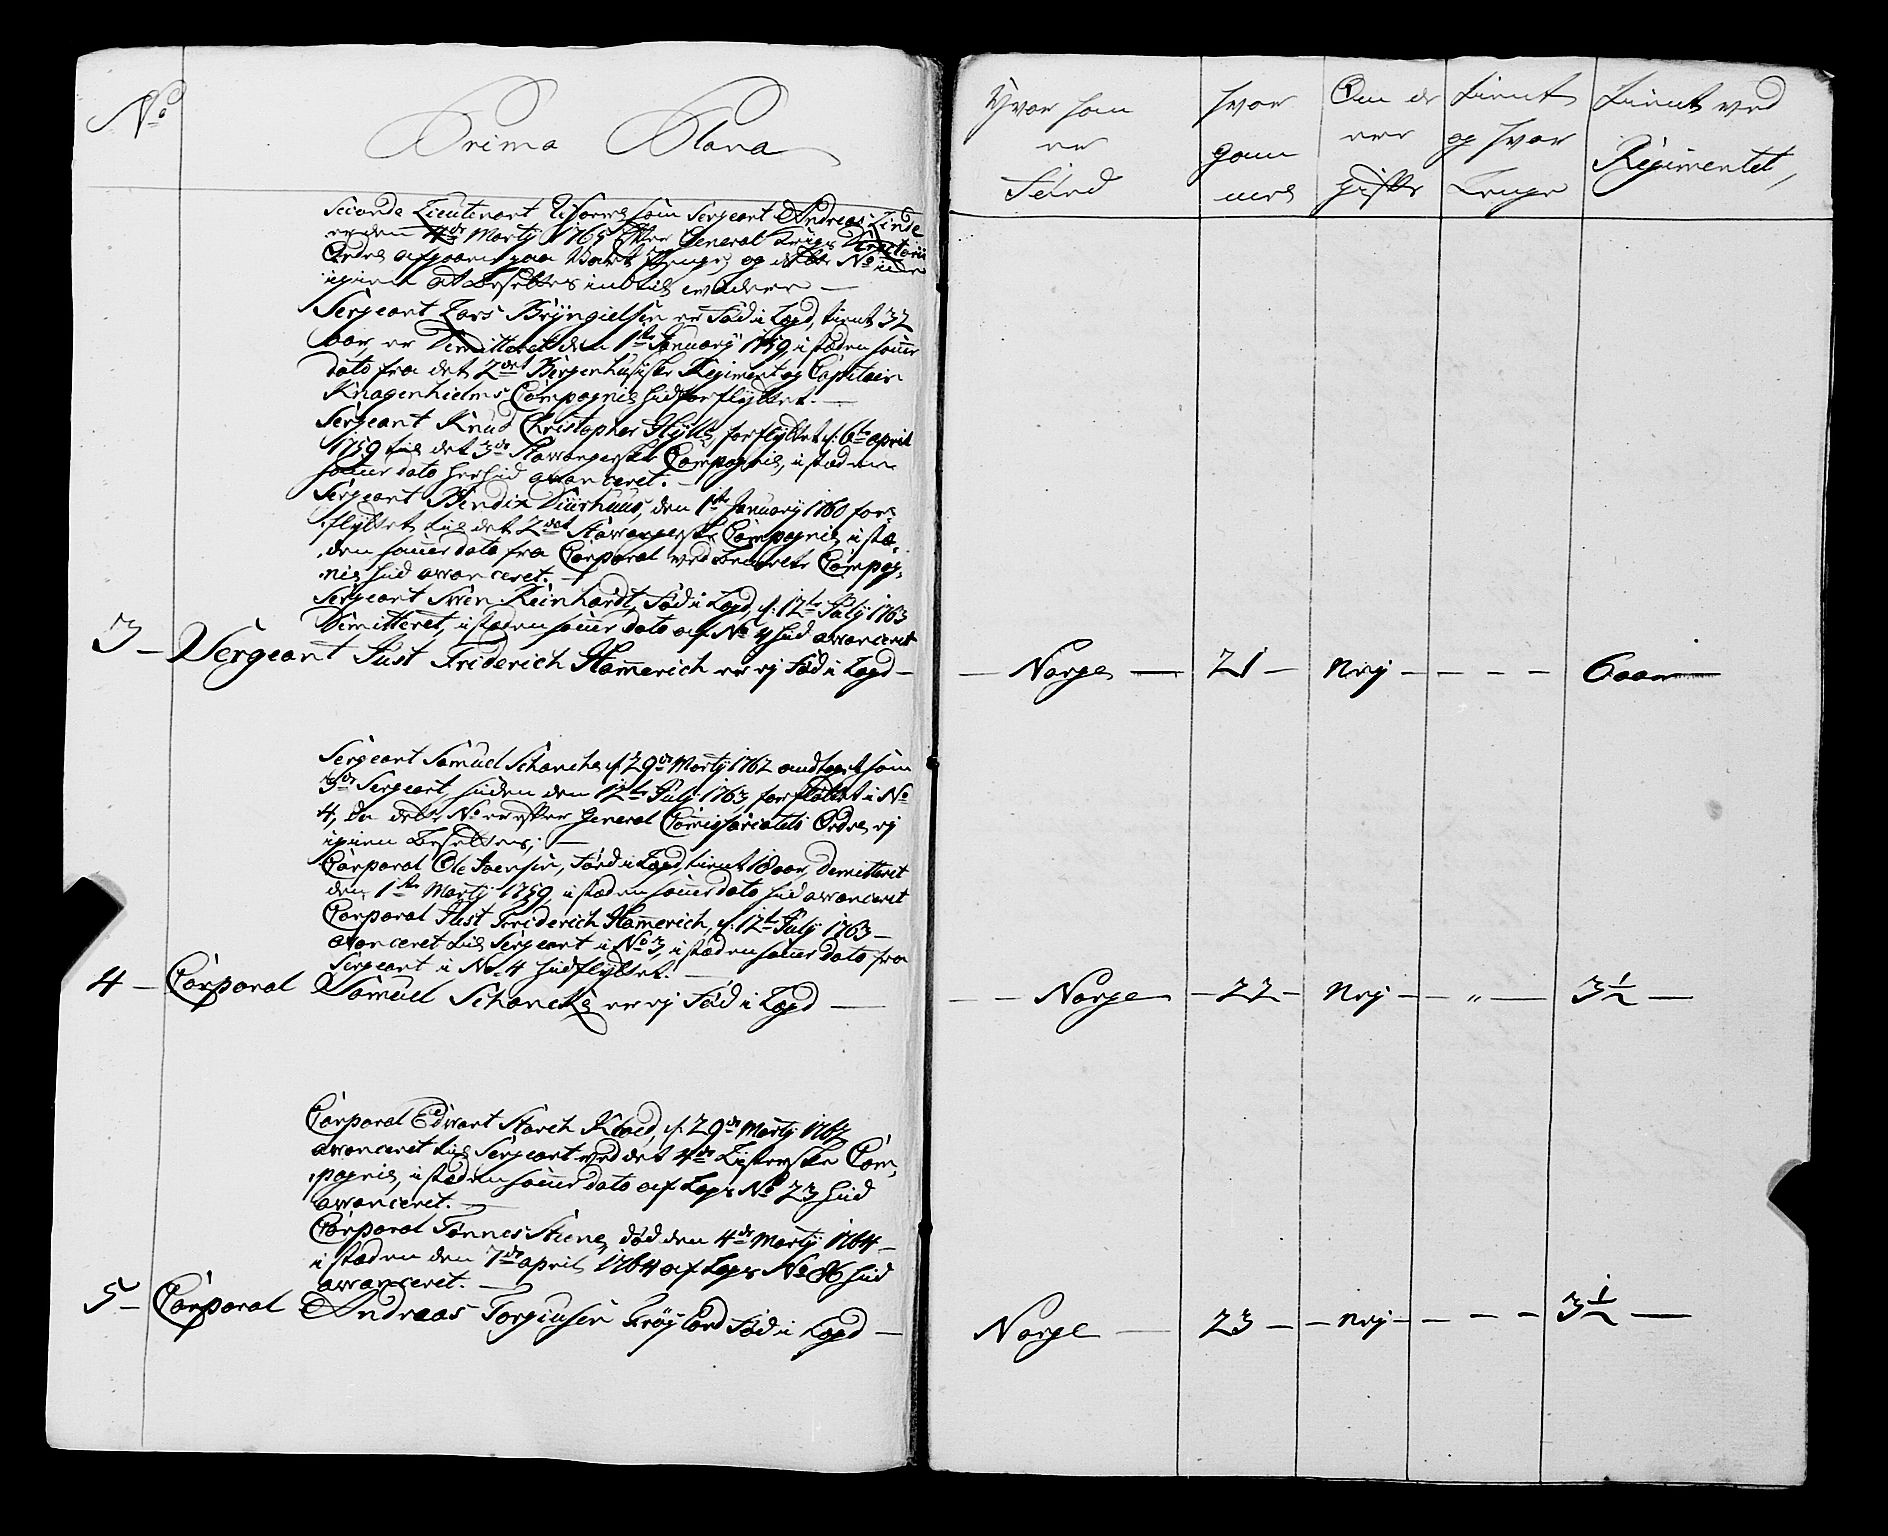 No
Prima Plana
Seconde Lieutenant Reformé som Sergeant Andreas Linde
er den 4de Martij 1765 efter General Krigs Directorii
Ordre afgaaen paa Vart Penge, og dette No ude
igien at besettes indtil videre —
Sergeant Lars Bryngielsen er Fød i Legd, tient 32
aar, er Dimitteret den 1ste January 1759, i stæden samme
dato fra det 2det Bergenhusiske Regiment og Capitain
Knagenhielms Compagnie hidforflyttet. —
Sergeant Knud Christopher Hylle, forflyttet d: 6te april
1759 til det 3de Stavangerske Compagnie, i stæden
samme dato herhid avanceret. —
Sergeant Bendix Duurhuus, den 1ste January 1760 for-
flyttet til det 2det Stavangerske Compagnie, i stæ-
den samme dato fra Corporal ved Compag-
nie hid avanceret. —
Sergeant Sven Reinhardt, Fød i Legd, d: 12te July 1763
Dimitteret, i stæden samme dato af No 4 hid avanceret
3 — Sergeant Just Friderich Hamerich er ej Fød i Legd —
Sergeant Samuel Schancke d: 29de Martij 1762 andtaget som
3de Sergeant, siden den 12te July 1763, forflöttet i No
4, da dette No er efter General Comissariatets Ordre ej
igien besettes; —
Corporal Ole Joensen, Fød i Legd, tient 18 aar, Demitteret
den 1ste Martij 1759, i stæden samme dato hid avanceret
Corporal Just Friderich Hamerich, d: 12te July 1763 —
avanceret til Sergeant i No 3, i stæden samme dato fra
Sergeant i No 4 hidflyttet. —
4 — Corporal Samuel Schancke er ej Fød i Legd —
Corporal Edvart Storch Kloed, d. 29de Martij 1762
avanceret til Sergeant ved det 4de Listerske Com-
pagnie, i stæden samme dato af Legs No 23 hid
avanceret. —
Corporal Tønnes Stiene, død den 4de Martij 1764 —
i stæden den 7de april 1764 af Legs No 86 hid
avanceret. —
5 — Corporal Andreas Torgiusen Frøylord Fød i Legd —
Hvor han
er
Fød
hvor
gam
mel
Om de
ere
gifte
Tient
og hvor
Lenge
Tient ved
Regimentet,
— Norge — 21 — Nej — — — — 6 aar —
— — Norge — 22 — Nej — — „ — 3½ —
Norge — 23 — — Nej — — — — 3½ —